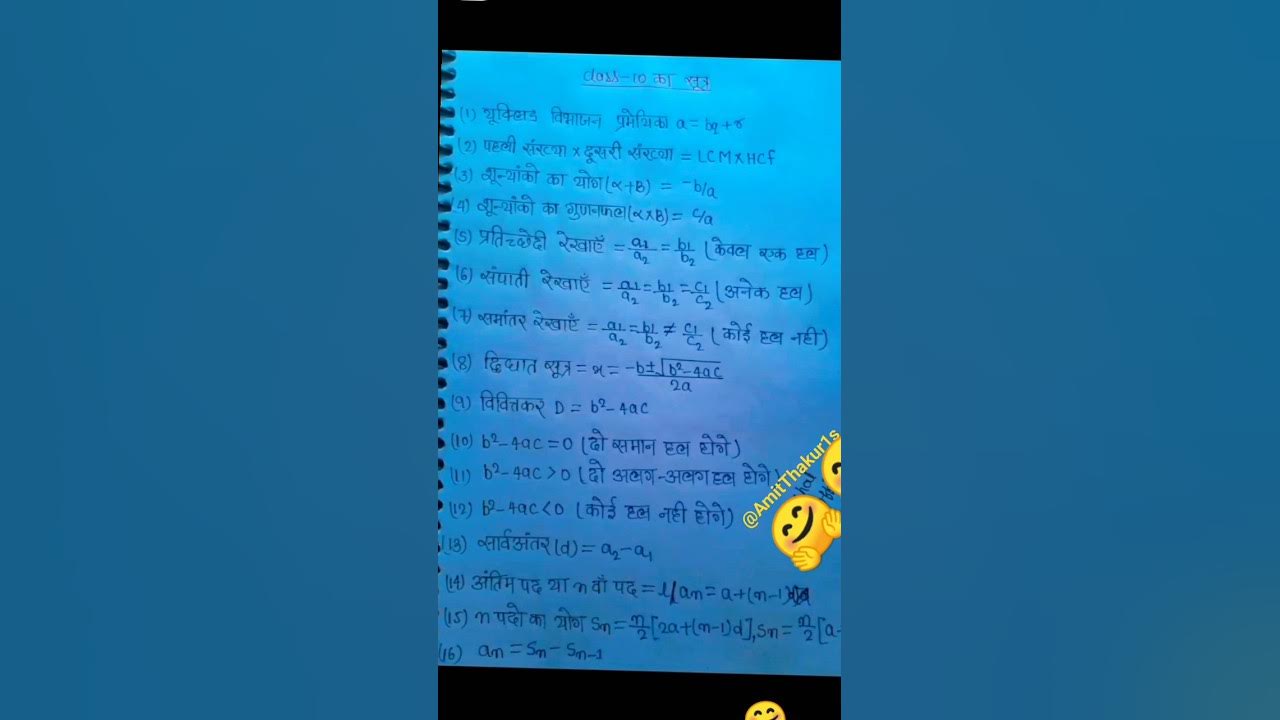 class-10 का सूत्र
(1) यूक्लिड विभाजन प्रमेयिका a = bq + r
(2) पहली संख्या × दूसरी संख्या = LCM × HCf
(3) शून्याँको का योग (α+B) = -b/a
(4) शून्याँको का गुणनफल (α×B) = c/a
(5) प्रतिच्छेदी रेखाएँ = a1/a2 = b1/b2 (केवल एक हल)
(6) संपाती रेखाएँ = a1/a2 = b1/b2 = c1/c2 (अनेक हल)
(7) समांतर रेखाएँ = a1/a2 = b1/b2 ≠ c1/c2 (कोई हल नही)
(8) द्विघात सूत्र = x = -b±√b²-4ac/2a
(9) विवित्तकर D = b²-4ac
(10) b²-4ac = 0 (दो समान हल होगे)
(11) b²-4ac > 0 (दो अलग-अलग हल होगे)
(12) b²-4ac < 0 (कोई हल नही होगे)
(13) सार्वअंतर (d) = a₂-a₁
(14) अंतिम पद या n वाँ पद = l/an = a+(n-1)
(15) n पदो का योग Sn = n/2[2a+(n-1)d], Sn = n/2[a-
(16) an = Sn - Sn-1
@AmitThakur1s